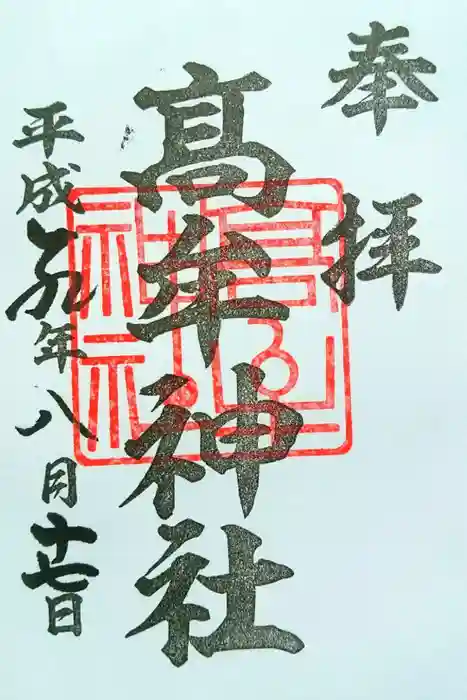 奉拝
髙牟神社
平成廿九年八月十七日